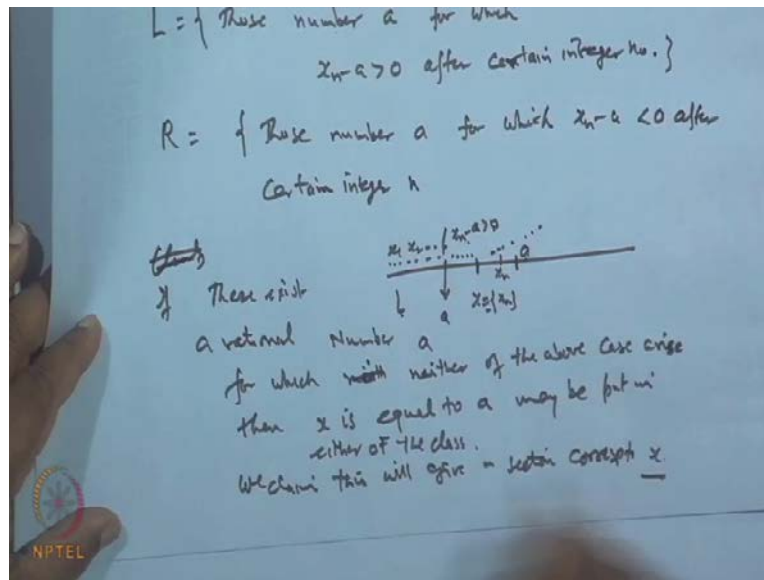 L = { Those number a for which
xₙ-a>0 after certain integer no. }
R = { Those number a for which xₙ-a <0 after
Certain integer n
x₁ x₂ ... xₙ-a>0
xₙ a
If There exist
L a x={xₙ}
a rational Number a
for which neither of the above case arise
then x is equal to a may be put in
either of the class.
We claim this will give a section x
NPTEL